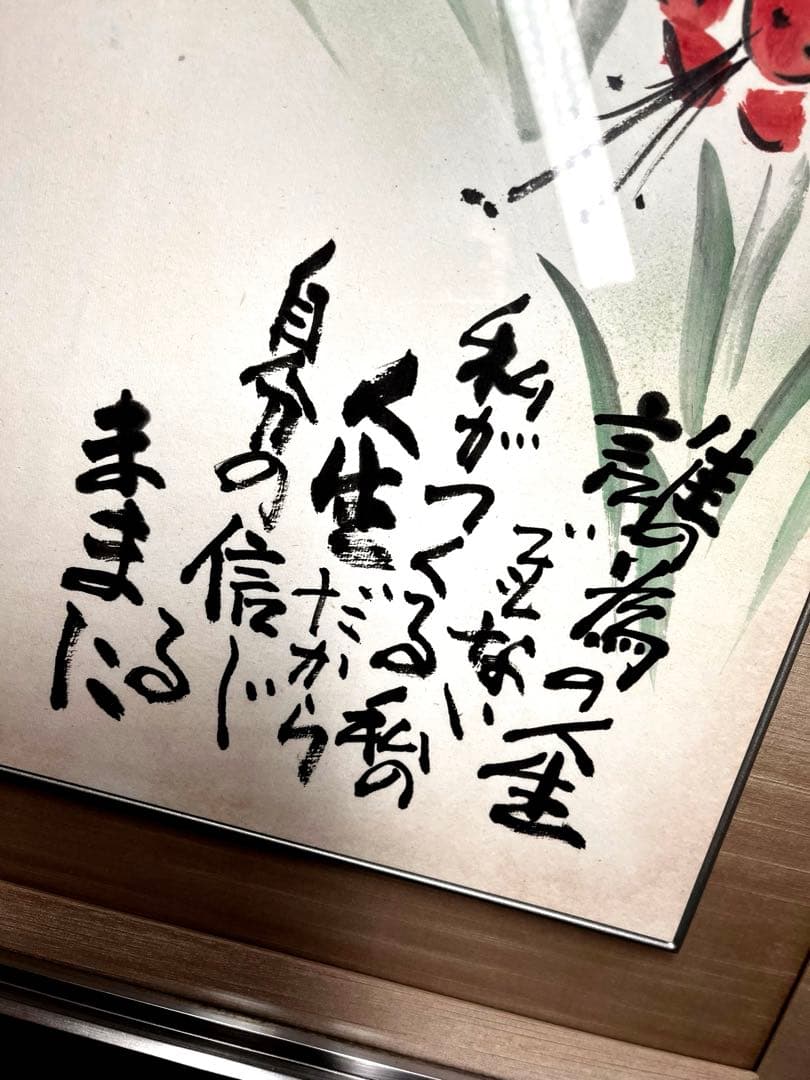 誰の為の人生
でもない
私がつくる私の
人生だから
自分の信じる
ままに